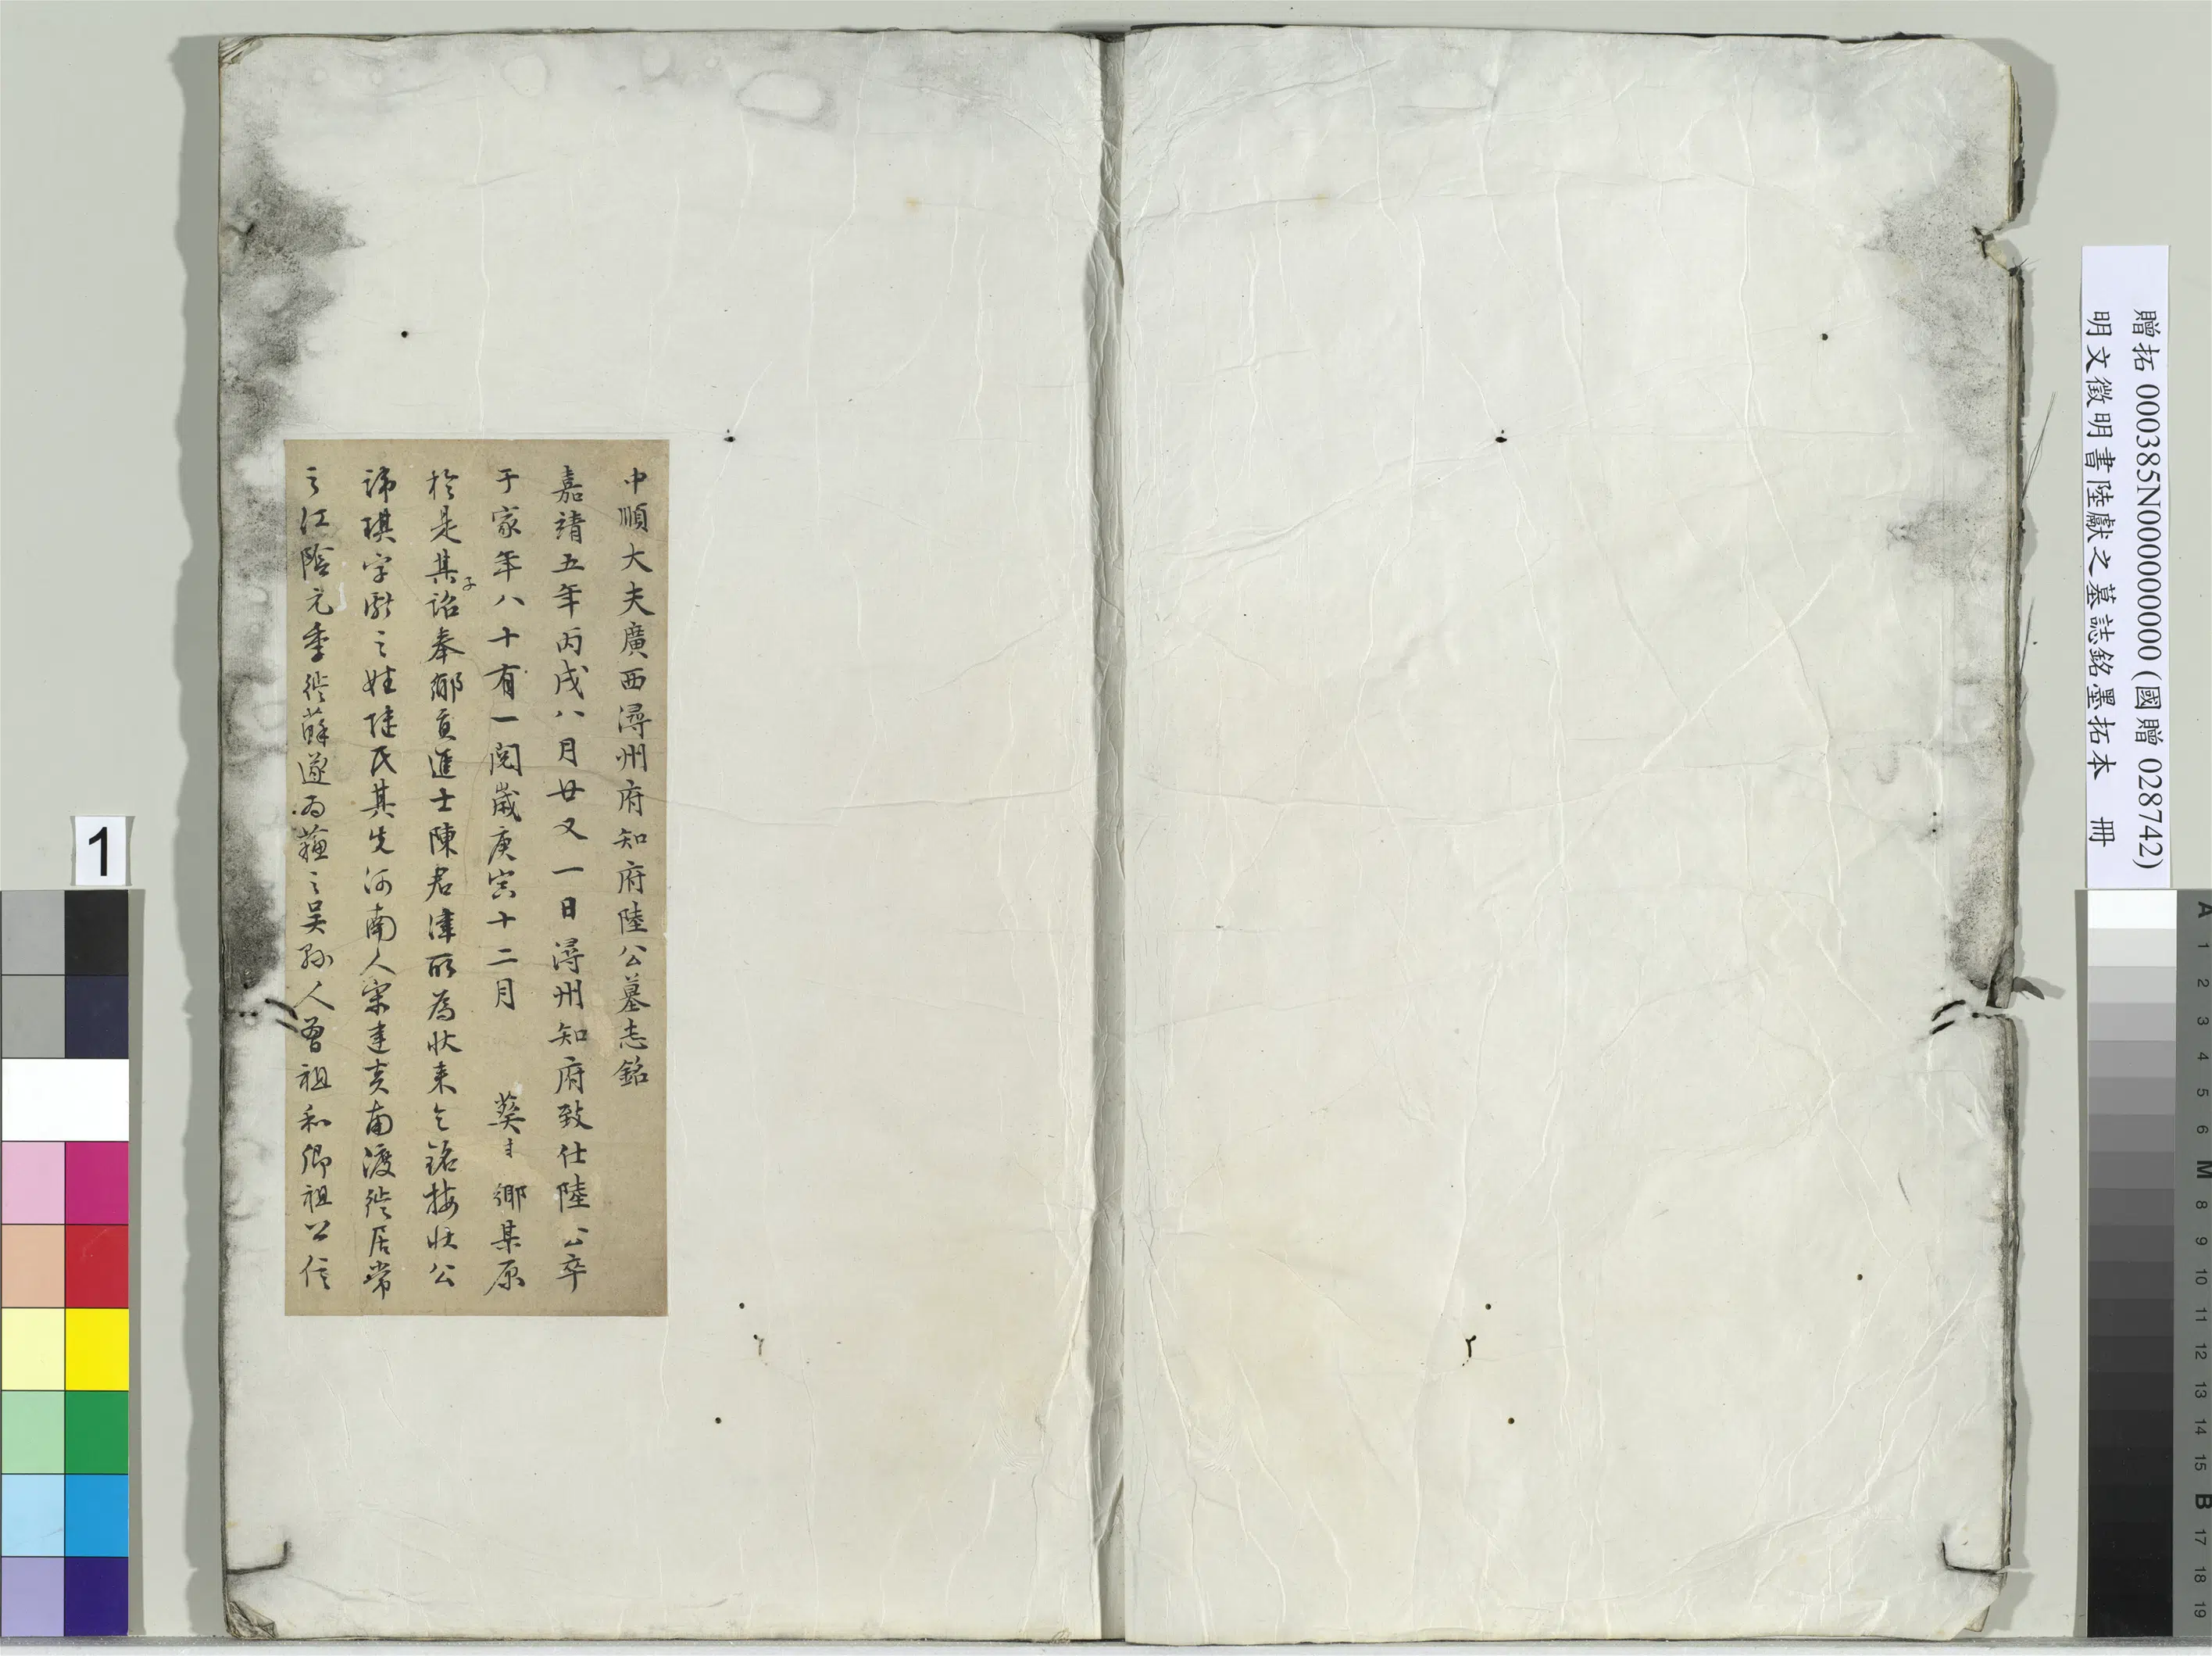 中順大夫廣西潯州府知府陸公墓志銘
嘉靖五年丙戌八月廿又一日潯州知府致仕陸公卒
于家年八十有一閱歲庚寅十二月 葵于鄉某原
於是其子詔奉鄉貢進士陳君津所為狀来乞銘按狀公
諱琪字獻之姓陸氏其先河南人宋建炎南渡徙居常
之江陰元季徙蘇遂為蘇之吳縣人曾祖和卿祖公信
贈拓 000385N000000000 (國贈 028742)
明文徵明書陸獻之墓誌銘墨拓本 冊
1
A
1
2
3
4
5
6
M
8
9
10
11
12
13
14
15
B
17
18
19